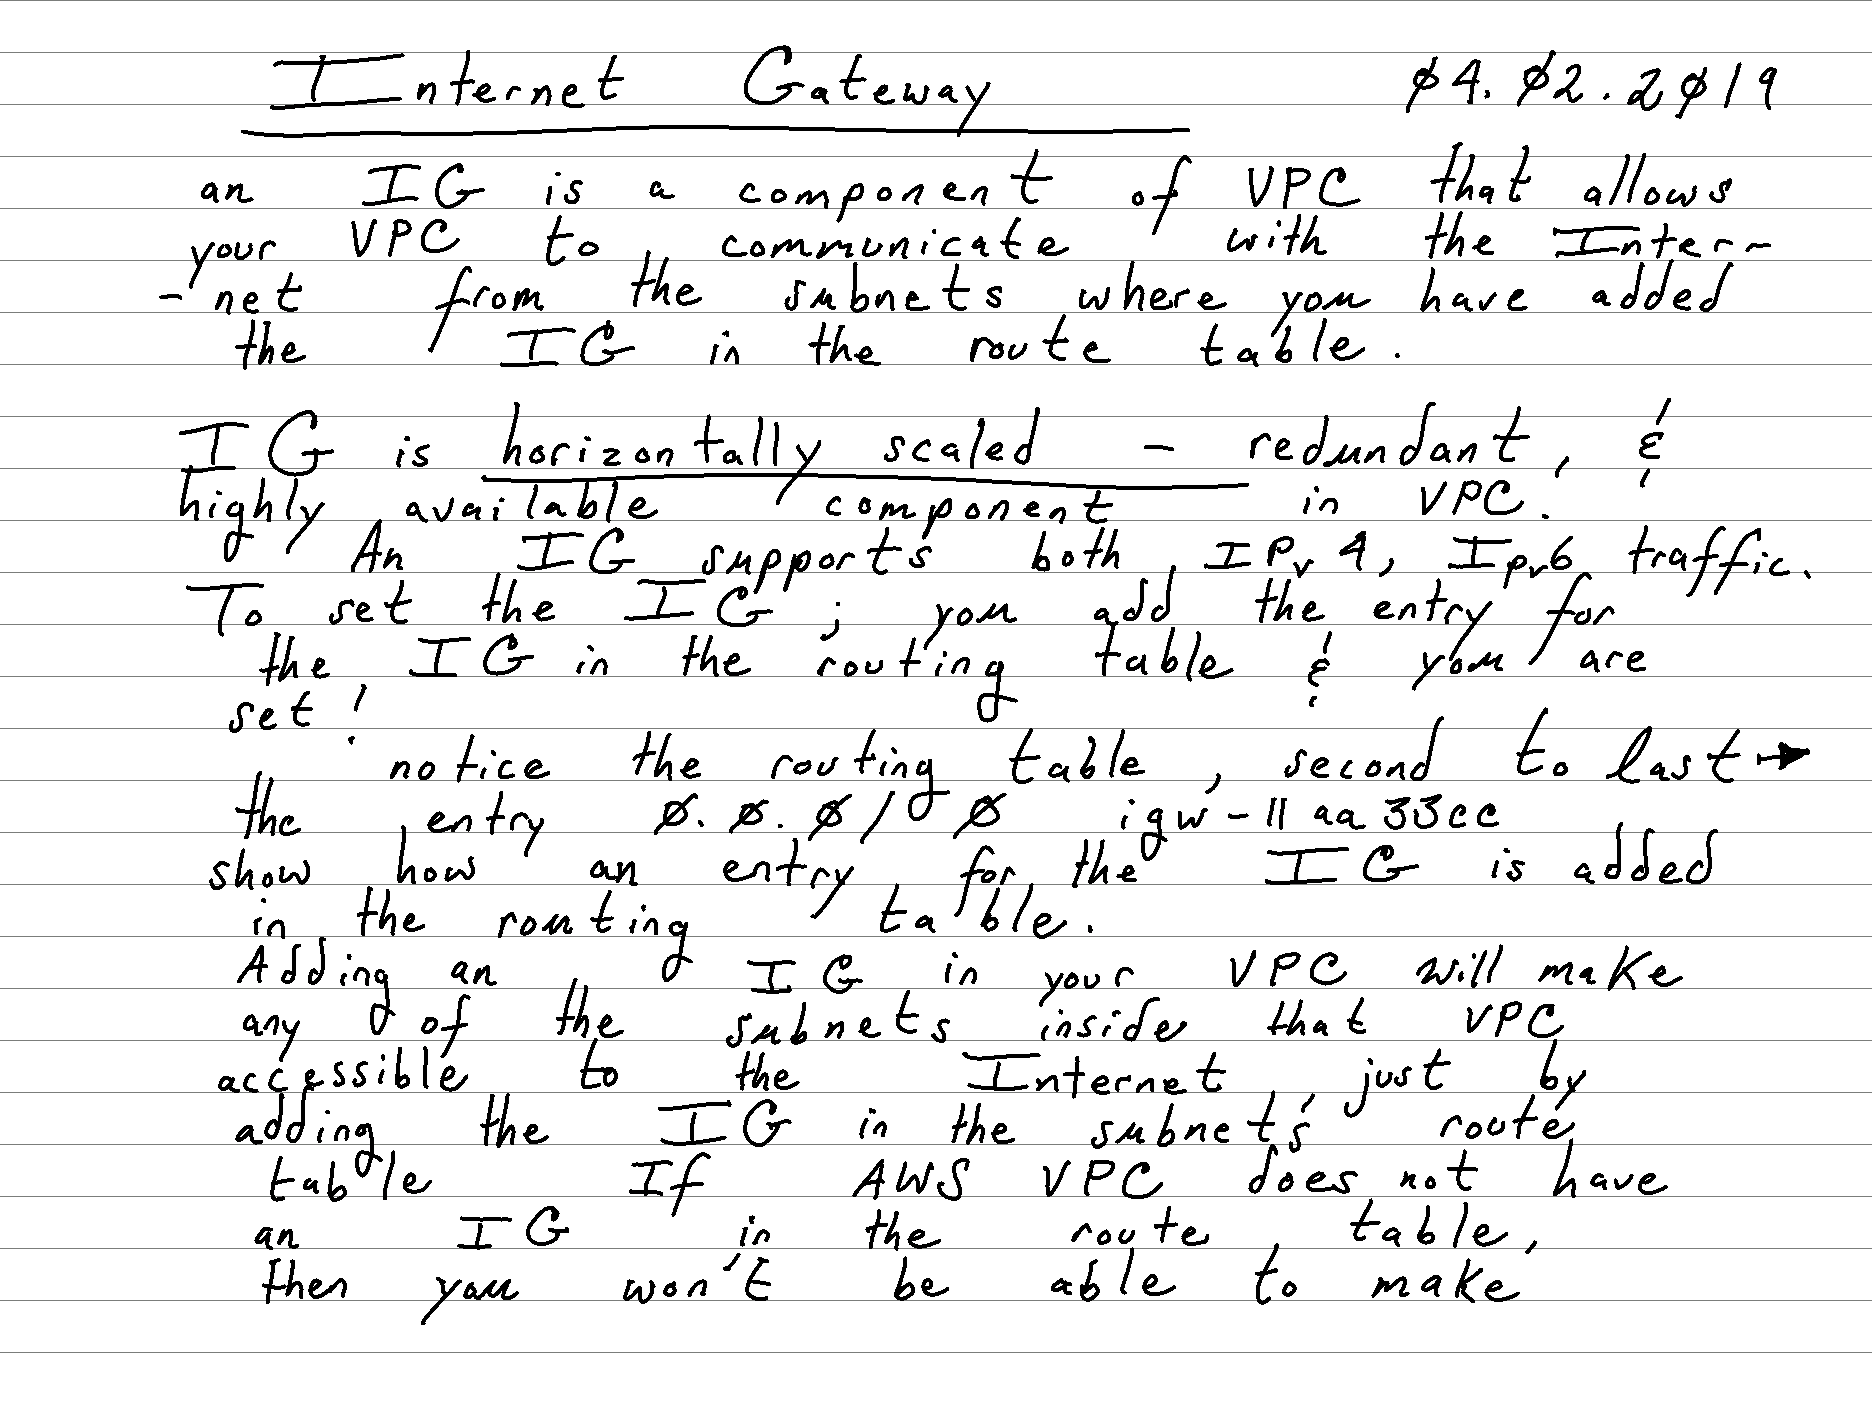 Internet Gateway 04.02.2019
an IG is a component of VPC that allows
your VPC to communicate with the Inter-
-net from the subnets where you have added
the IG in the route table.
IG is horizontally scaled - redundant, &
highly available component in VPC.
An IG supports both IPv4, Ipv6 traffic.
To set the IG ; you add the entry for
the IG in the routing table & you are
set!
notice the routing table, second to last →
the entry 0.0.0/0 igw-11aa33cc
show how an entry for the IG is added
in the routing table.
Adding an IG in your VPC will make
any of the subnets inside that VPC
accessible to the Internet, just by
adding the IG in the subnet's route
table If AWS VPC does not have
an IG in the route table,
then you won't be able to make